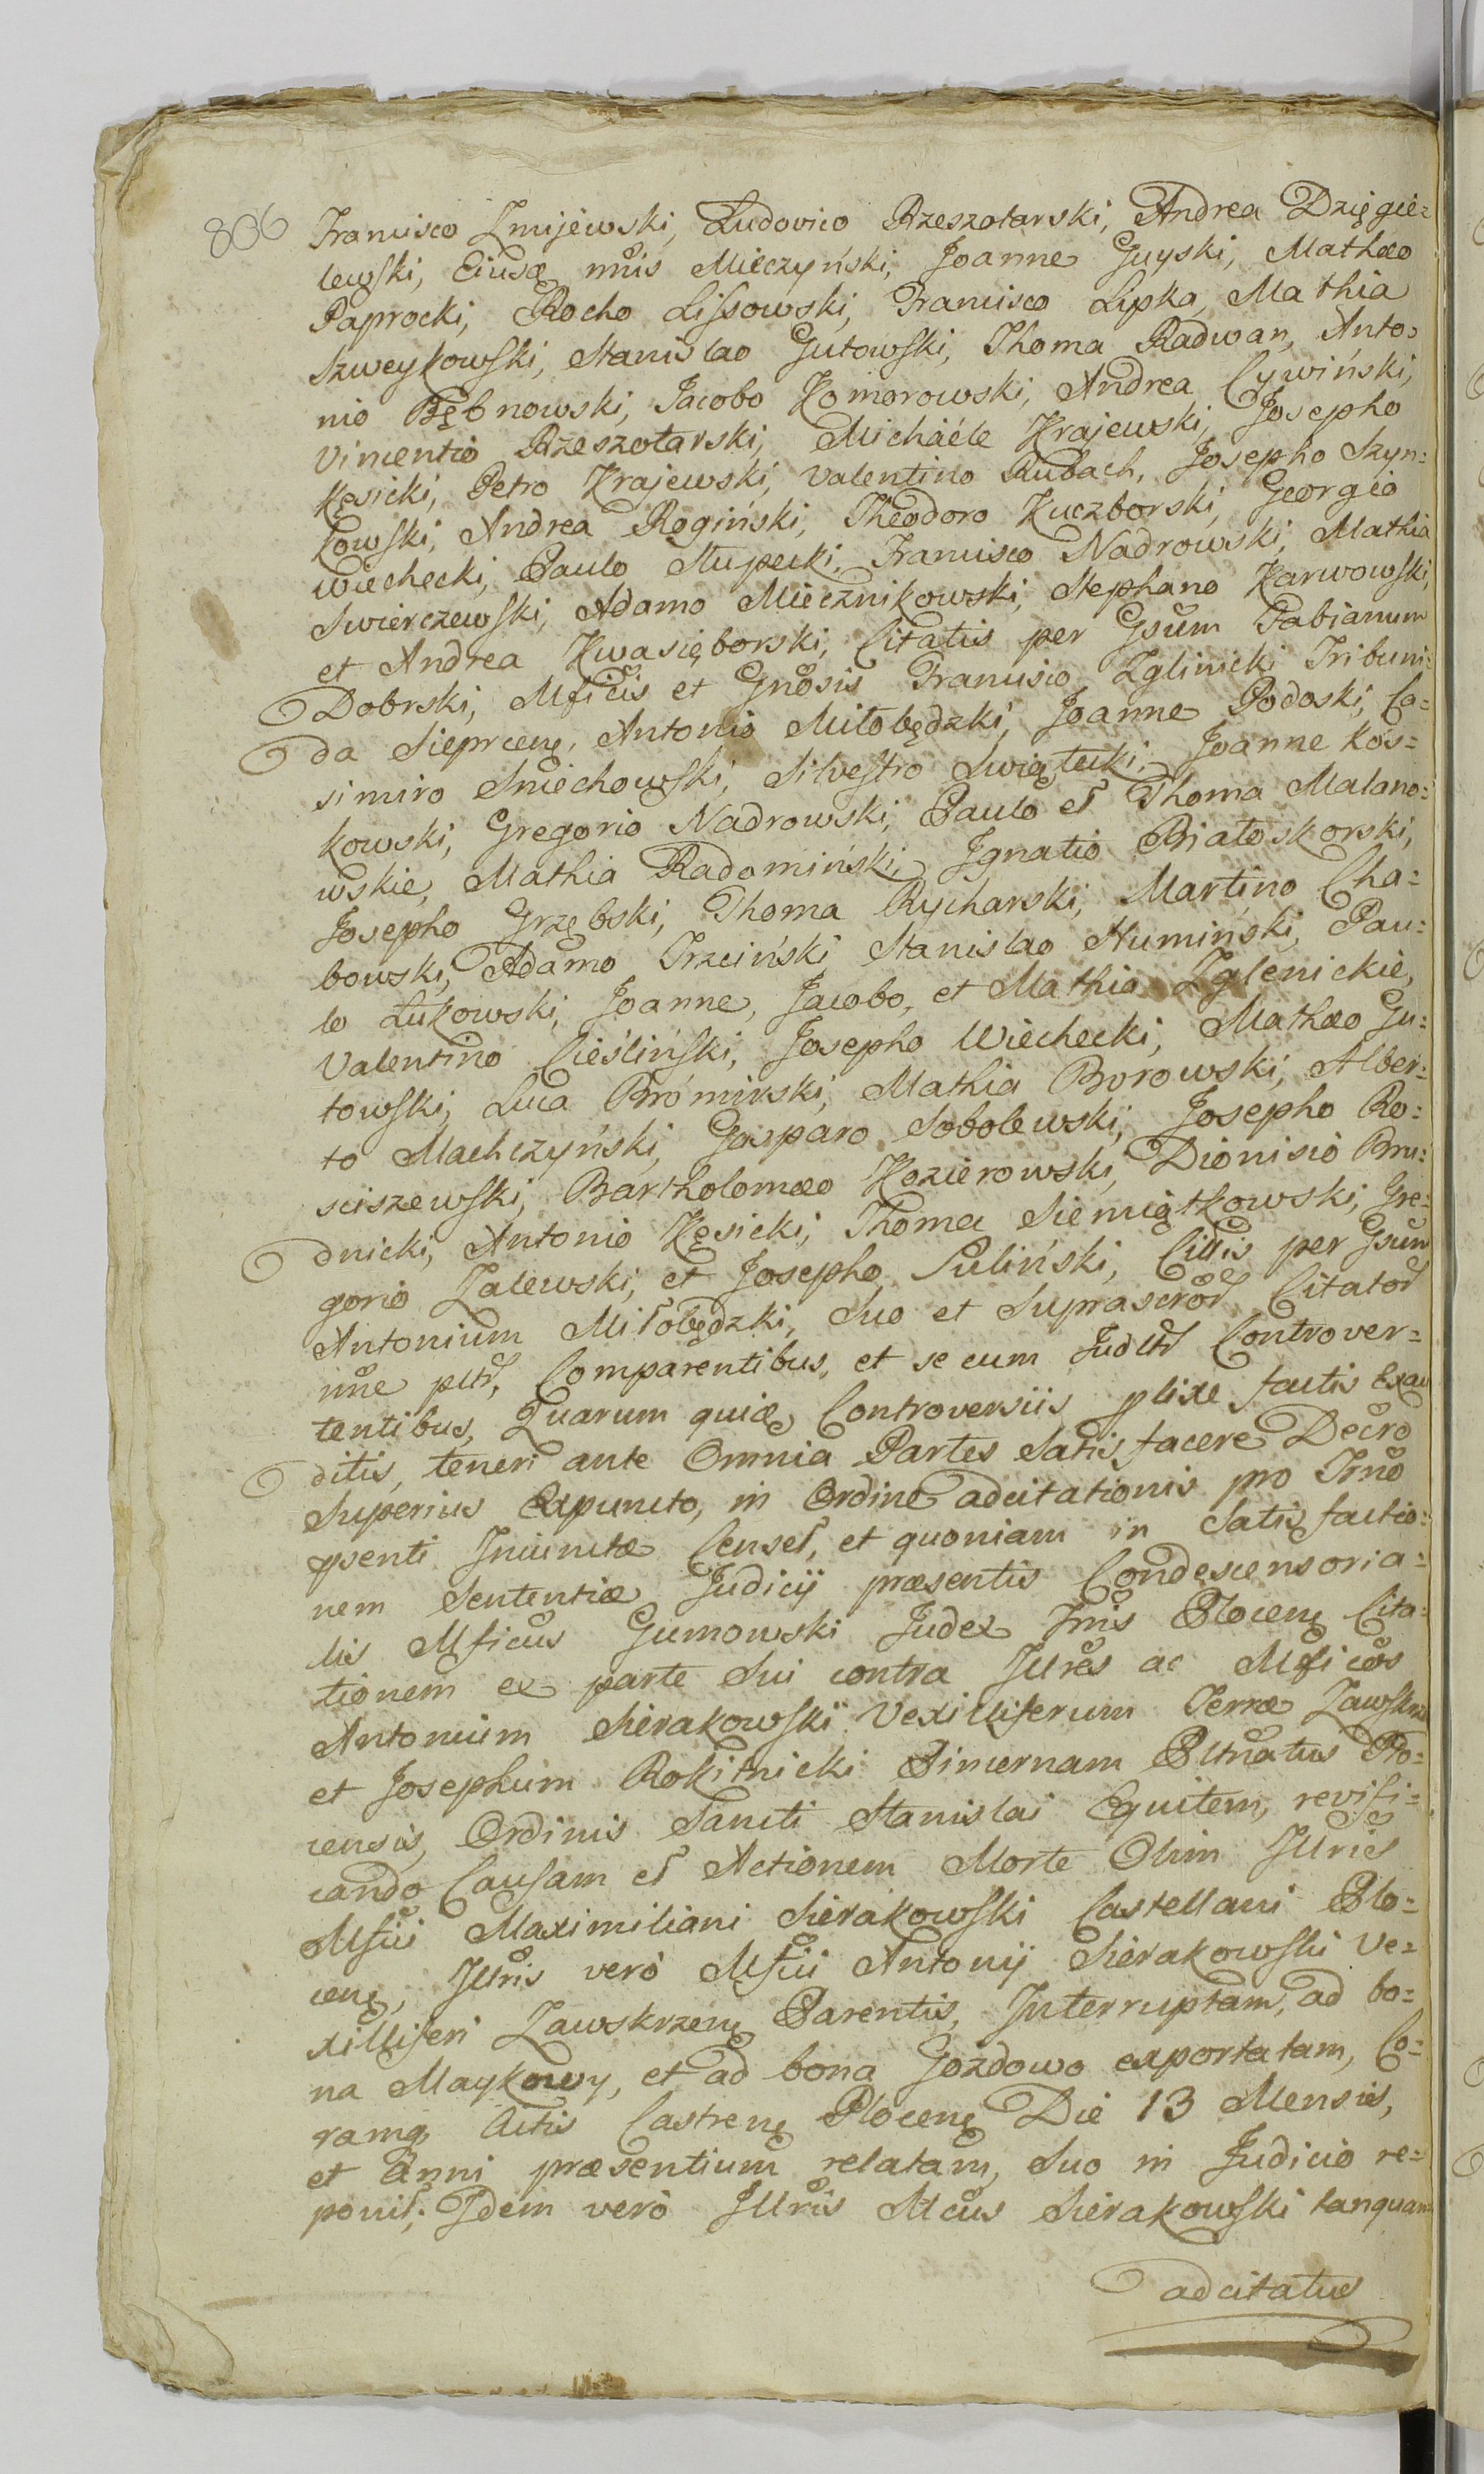 806
Francisco Zmijewski, Ludovico Rzeszotarski, Andrea Dzięgie=
lewski, Eiusd nnis Mieczyński, Joanne Guyski, Mathæo
Paprocki, Rocho Lissowski, Francisco Lipka, Mathia
Szweykowski, Stanislao Gutowski, Thoma Radwan, Anto=
nio Bębnowski, Jacobo Komorowski, Andrea Cywiński,
Vincentio Rzeszotarski, Michaéle Krajewski, Josepho
Kęsicki, Petro Krajewski, Valentino Rubach, Josepho Szyn=
kowski, Andrea Rogiński, Theodoro Kuczborski, Georgio
Wiechecki, Paulo Słupecki, Francisco Nadrowski, Mathia
Swierczewski, Adamo Miecznikowski, Stephano Karwowski,
et Andrea Kwasięborski, Citatis per Gsum Fabianum
Dobrski, Mficis et Gnosis Francisco Zglinicki Tribuni=
da Sieprcenę, Antonio Miłobędzki, Joanne Podoski, Ca=
simiro Sniechowski, Silvestro Swiątecki, Joanne Kos=
kowski, Gregorio Nadrowski, Paulo et Thoma Malano=
wskie, Mathia Radomiński, Ignatio Białoskorski,
Josepho Grzębski, Thoma Rycharski, Martino Cha=
bowski, Adamo Trzciński, Stanislao Numiński, Pau=
lo Łukowski, Joanne, Jacobo, et Mathia Zglenickie,
Valentino Cieśliński, Josepho Wiechecki, Mathæo Gu=
towski, Luca Bromirski, Mathia Borowski, Alber=
to Machczyński, Gasparo Sobolewski, Josepho Ro=
sciszewski, Bartholomæo Kozierowski, Dionisio Bru=
dnicki, Antonio Kęsicki, Thoma Siemiątkowski, Gre=
gorio Zalewski, et Josepho Suliński, Cittis per Gsum
Antonium Miłobędzki, Suo et Suprascror Citator
nne pttr, Comparentibus, et se cum Judttr Controver=
tentibus, Quarum quidę Controversiis plixe factis Exau
ditis, teneri ante Omnia Partes Satisfacere Decro
Superius Expuncto, in Ordine adcitationis pro Trno
psenti Iniunctæ Censet, et quoniam in Satisfactio=
nem Sententiæ Judicij præsentis Condescensoria=
lis Mficus Gumowski Judex Trris Plocenę Cita=
tionem ex parte Sui contra Illres ac Mficos
Antonium Sierakowski Vexilliferum Terræ Zawskrz
et Josephum Rokitnicki Pincernam Pltnatus Plo=
censis, Ordinis Sancti Stanislai Equitem, revifi=
cando Causam et Actionem Morte Olim Illris
Mfici Maximiliani Sierakowski Castellani Plo=
cenę, Illris verò Mfici Antonij Sierakowski Ve=
xilliferi Zawskrzenę Parentis, Interruptam, ad bo=
na Maykowy, et ad bona Gozdowo exportatam, Co=
ramq Actis Castrenę Plocenę Die 13 Mensis,
et anni præsentium relatam, Suo in Judicio re=
ponit; Idem verò Illris Mcus Sierakowski tanquam
adcitatus